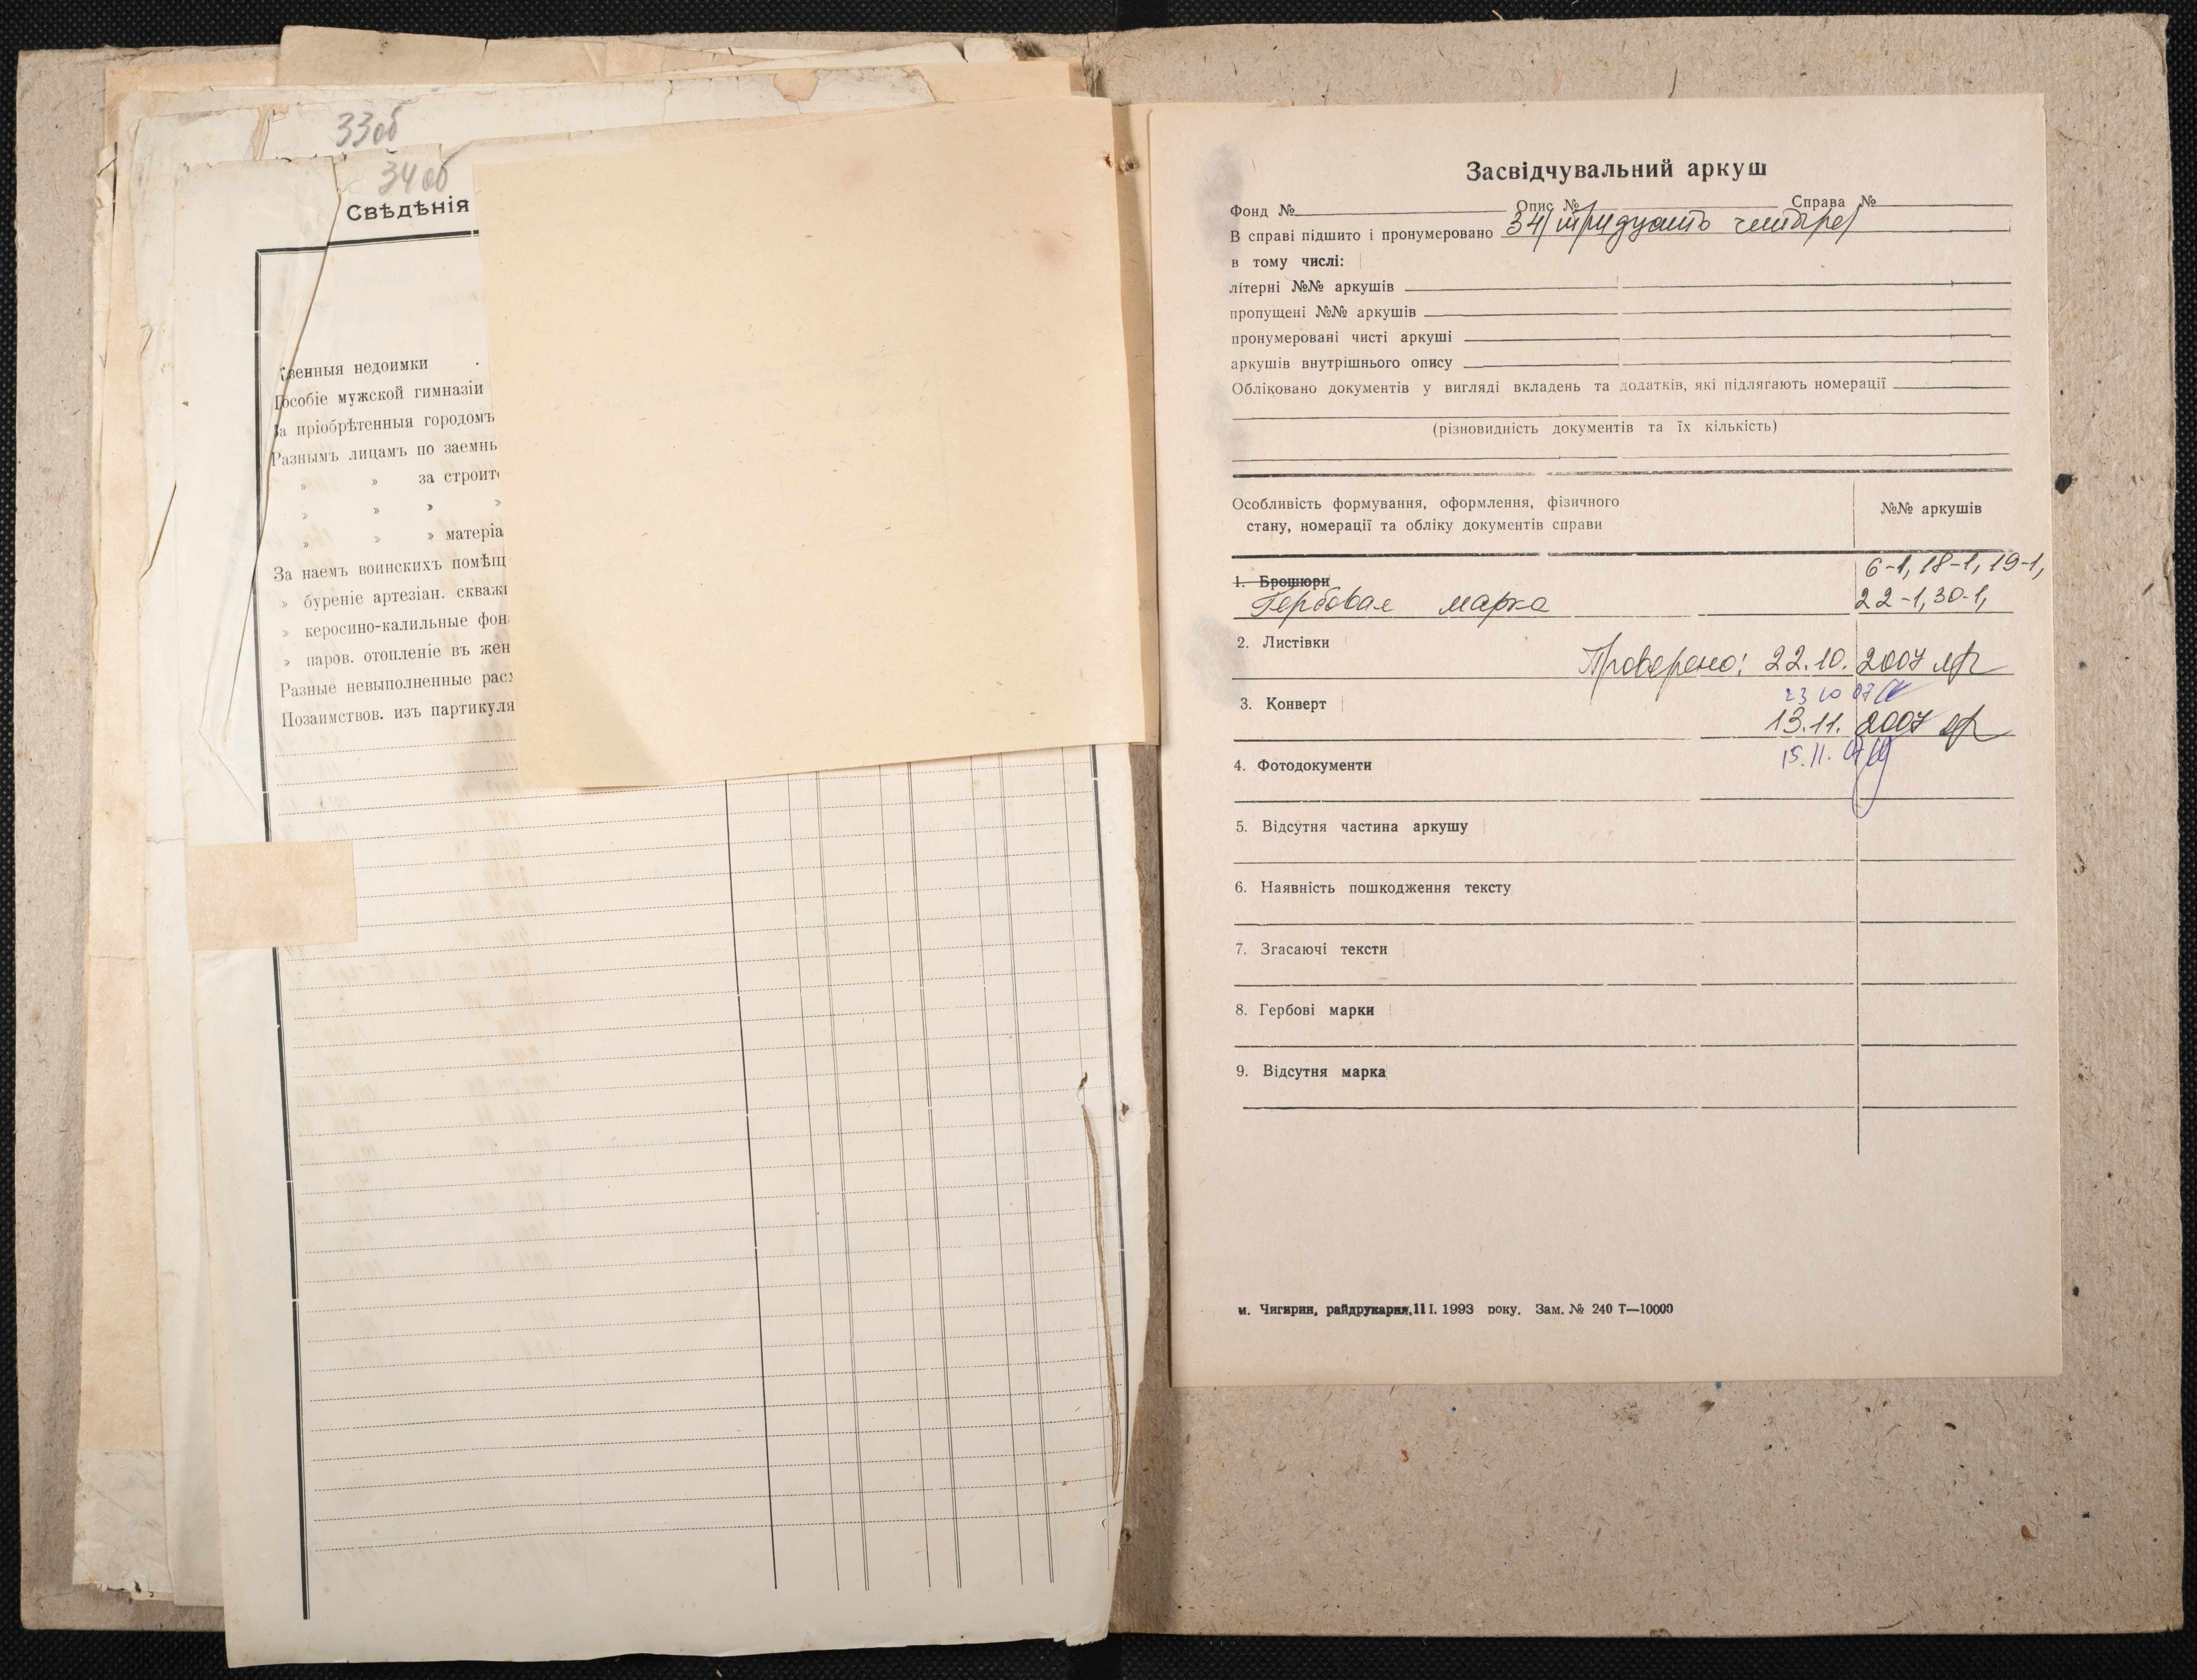 33об
34об
Свѣдѣнія
венныя недоимки .
Пособіе мужской гимназіи
За пріобрѣтенныя городомъ
Разнымъ лицамъ по заемнь
» » за строит
» » » »
» » » матеріа
За наемъ воинскихъ помѣщ
» буреніе артезіан. скважи
» керосино-калильные фон
» паров. отопленіе въ жен
Разные невыполненные рас
Позаимствов. изъ партикуля
Засвідчувальний аркуш
Фонд № Опис № Справа №
В справі підшито і пронумеровано 34/тридцать четыре/
в тому числі:
літерні №№ аркушів
пропущені №№ аркушів
пронумеровані чисті аркуші
аркушів внутрішнього опису
Обліковано документів у вигляді вкладень та додатків, які підлягають номерації
(різновидність документів та їх кількість)
Особливість формування, оформлення, фізичного
стану, номерації та обліку документів справи
№№ аркушів
1. Брошюри
Гербовая марка
6-1, 18-1, 19-1,
22-1, 30-1,
2. Листівки
Проверено: 22.10.2007
23 10 07
3. Конверт
13.11.2007
15.11.07
4. Фотодокументи
5. Відсутня частина аркушу
6. Наявність пошкодження тексту
7. Згасаючі тексти
8. Гербові марки
9. Відсутня марка
м. Чигирин, райдрукарня, 11 I. 1993 року. Зам. № 240 Т—10000